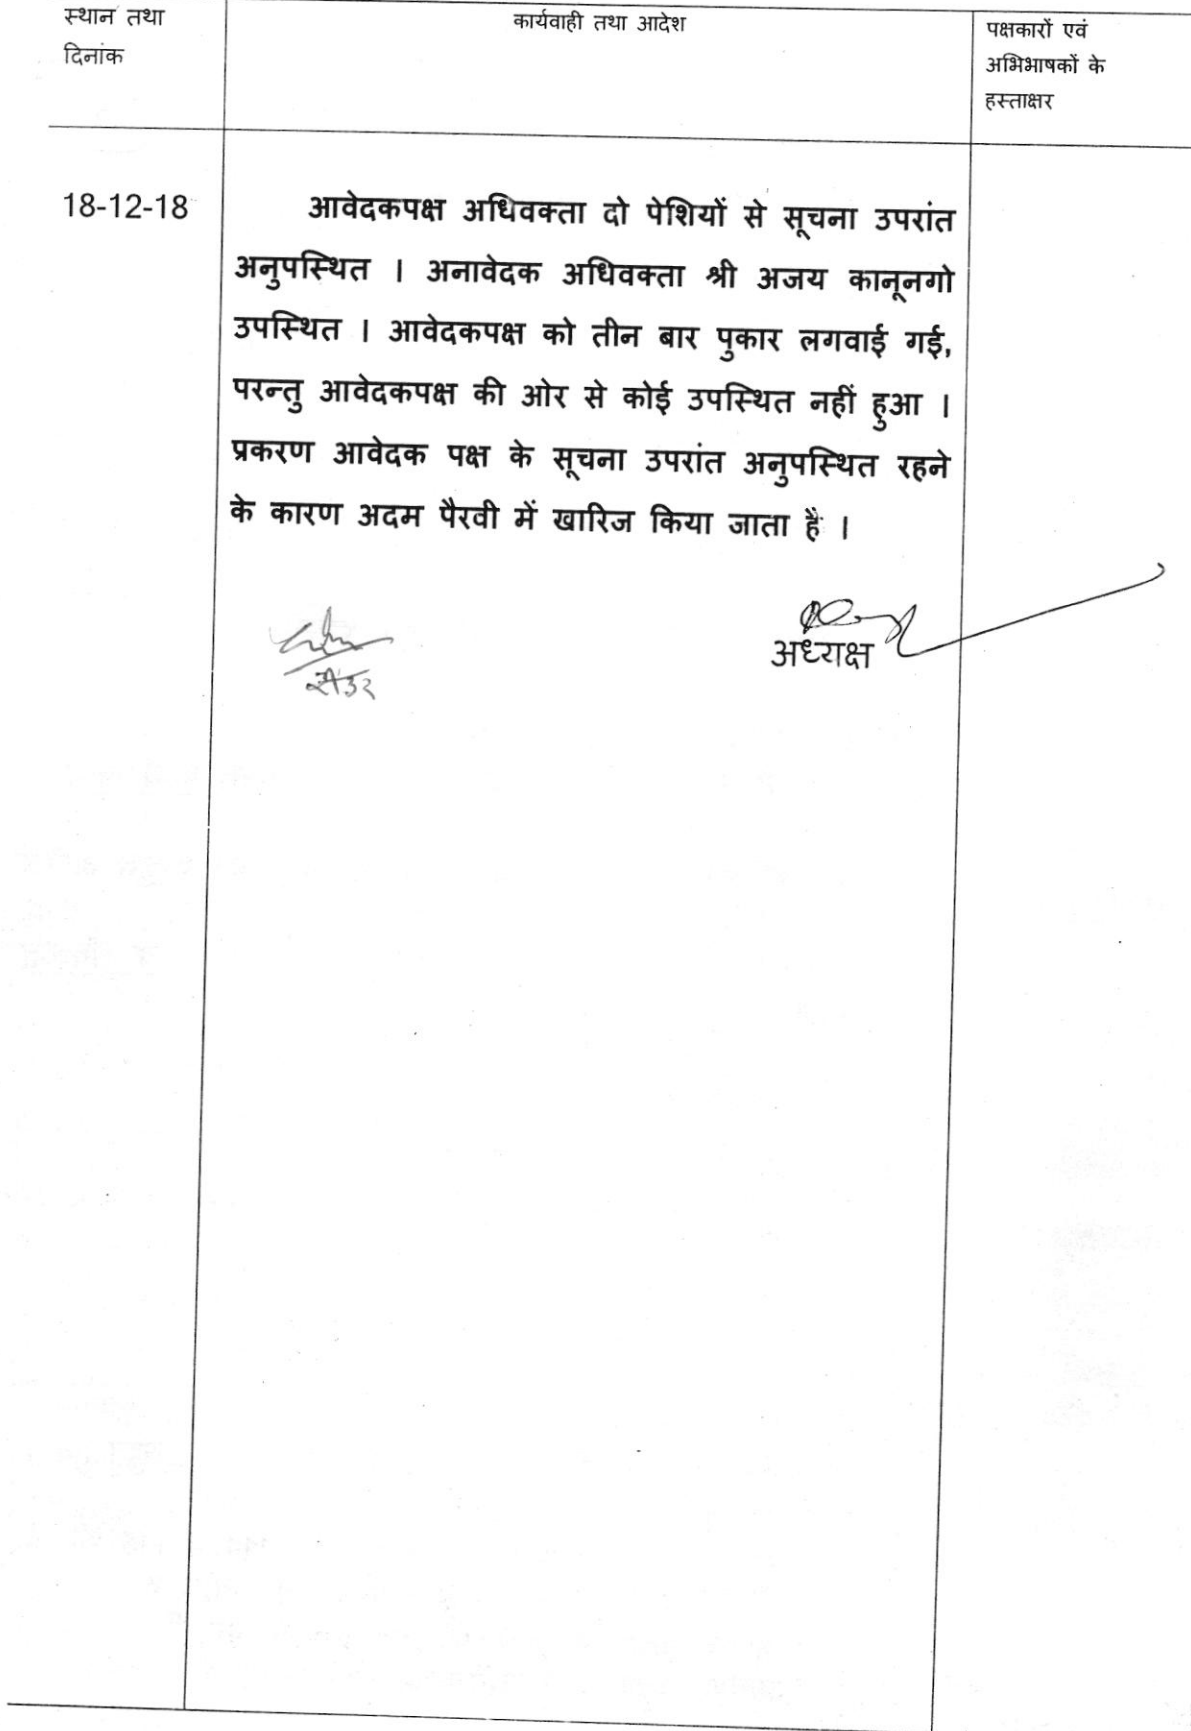 स्थान तथा
दिनांक
कार्यवाही तथा आदेश
पक्षकारों एवं
अभिभाषकों के
हस्ताक्षर
18-12-18
आवेदकपक्ष अधिवक्ता दो पेशियों से सूचना उपरांत
अनुपस्थित । अनावेदक अधिवक्ता श्री अजय कानूनगो
उपस्थित । आवेदकपक्ष को तीन बार पुकार लगवाई गई,
परन्तु आवेदकपक्ष की ओर से कोई उपस्थित नहीं हुआ ।
प्रकरण आवेदक पक्ष के सूचना उपरांत अनुपस्थित रहने
के कारण अदम पैरवी में खारिज किया जाता है ।
अध्यक्ष